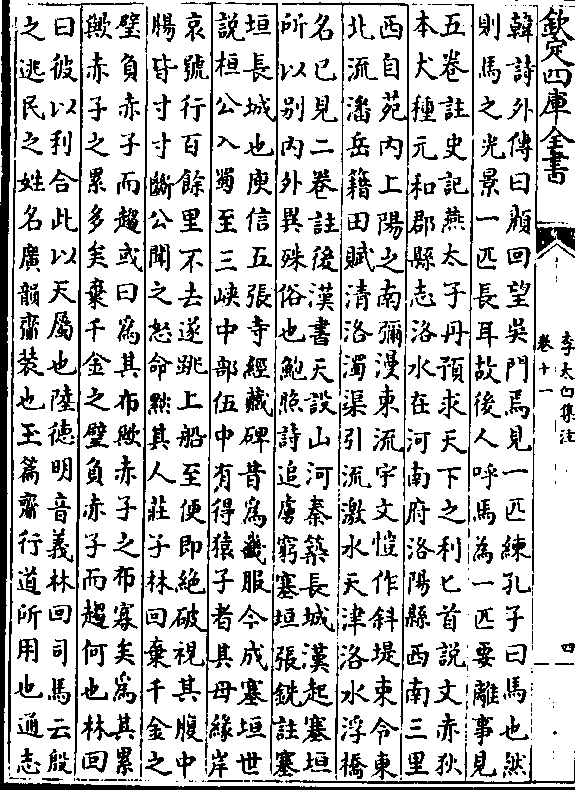 欽定四庫全書
李太白集注
卷十一
四
韓詩外傳曰顏回望吳門焉見一匹練孔子曰馬也然
則馬之光景一匹長耳故後人呼馬為一匹要離事見
五卷註史記燕太子丹預求天下之利匕首說文赤狄
本犬種元和郡縣志洛水在河南府洛陽縣西南三里
西自苑內上陽之南彌漫東流宇文愷作斜堤束令東
北流潘岳籍田賦清洛濁渠引流激水天津洛水浮橋
名已見二卷註後漢書天設山河秦築長城漢起塞垣
所以別內外異殊俗也鮑照詩追虜窮塞垣張銑註塞
垣長城也庾信五張寺經藏碑昔為畿服今成塞垣世
說桓公入蜀至三峽中部伍中有得猿子者其母緣岸
哀號行百餘里不去遂跳上船至便即絕破視其腹中
腸皆寸寸斷公聞之怒命黜其人莊子林回棄千金之
璧負赤子而趨或曰為其布歟赤子之布寡矣為其累
歟赤子之累多矣棄千金之璧負赤子而趨何也林回
曰彼以利合此以天屬也陸德明音義林回司馬云殷
之逃民之姓名廣韻齎裝也玉篇齎行道所用也通志